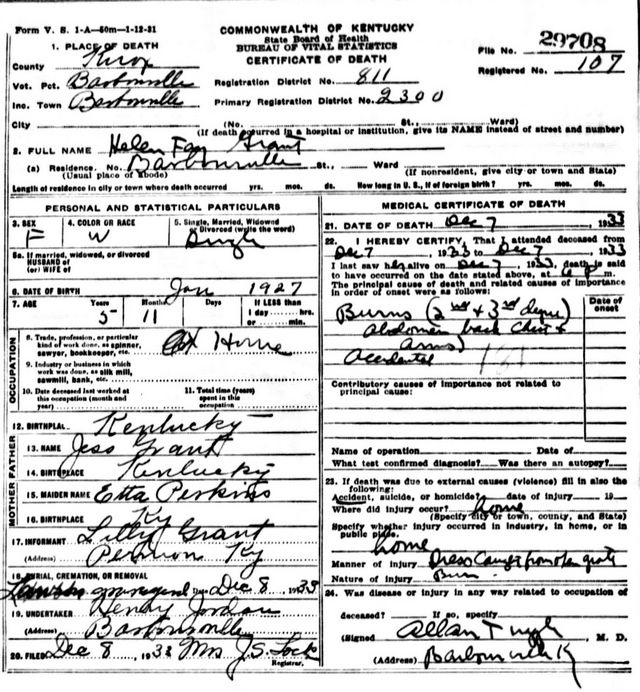 Form V. S. 1-A—50m—1-12-31
COMMONWEALTH OF KENTUCKY
State Board of Health
BUREAU OF VITAL STATISTICS
CERTIFICATE OF DEATH
File No. 29708
Registered No. 107
1. PLACE OF DEATH
County Knox
Vot. Pct. Barbourville
Inc. Town Barbourville
Registration District No. 811
Primary Registration District No. 2300
City (No. St., Ward)
(If death occurred in a hospital or institution, give its NAME instead of street and number)
2. FULL NAME Helen Fay Grant
(a) Residence. No. Barbourville St., Ward
(Usual place of abode) (If nonresident, give city or town and State)
Length of residence in city or town where death occurred yrs. mos. ds. How long in U. S., if of foreign birth? yrs. mos. ds.
PERSONAL AND STATISTICAL PARTICULARS
3. SEX F
4. COLOR OR RACE W
5. Single, Married, Widowed or Divorced (write the word) Single
5a. If married, widowed, or divorced
HUSBAND of
(or) WIFE of
6. DATE OF BIRTH Jan 1927
7. AGE Years 5 Months 11 Days If LESS than
1 day hrs.
or min.
OCCUPATION
8. Trade, profession, or particular
kind of work done, as spinner,
sawyer, bookkeeper, etc. At Home
9. Industry or business in which
work was done, as silk mill,
sawmill, bank, etc.
10. Date deceased last worked at
this occupation (month and
year)
11. Total time (years)
spent in this
occupation
12. BIRTHPLAC Kentucky
FATHER
13. NAME Jess Grant
14. BIRTHPLACE Kentucky
MOTHER
15. MAIDEN NAME Etta Perkins
16. BIRTHPLACE Ky
17. INFORMANT Lilly Grant
(Address) Ky
18. BURIAL, CREMATION, OR REMOVAL
graveyard Date Dec 8 1933
19. UNDERTAKER Henry Jordan
(Address) Barbourville
20. FILED Dec 8 1933 Mrs J.S. Lock
Registrar.
MEDICAL CERTIFICATE OF DEATH
21. DATE OF DEATH Dec 7, 1933
22. I HEREBY CERTIFY, That I attended deceased from
Dec 7, 1933 to Dec 7, 1933
I last saw her alive on Dec 7, 1933, death is said
to have occurred on the date stated above, at m.
The principal cause of death and related causes of importance
in order of onset were as follows:
Date of onset
Burns (2nd & 3rd degree
abdomen back chest &
arms)
Accidental 181
Contributory causes of importance not related to
principal cause:
Name of operation Date of
What test confirmed diagnosis? Was there an autopsy?
23. If death was due to external causes (violence) fill in also the
following:
Accident, suicide, or homicide? date of injury 19
Where did injury occur? home
(Specify city or town, county, and State)
Specify whether injury occurred in industry, in home, or in
public place.
home
Manner of injury Dress caught from open grate
Nature of injury Burn
24. Was disease or injury in any way related to occupation of
deceased? If so, specify
(Signed) Allan M. D.
(Address) Barbourville Ky